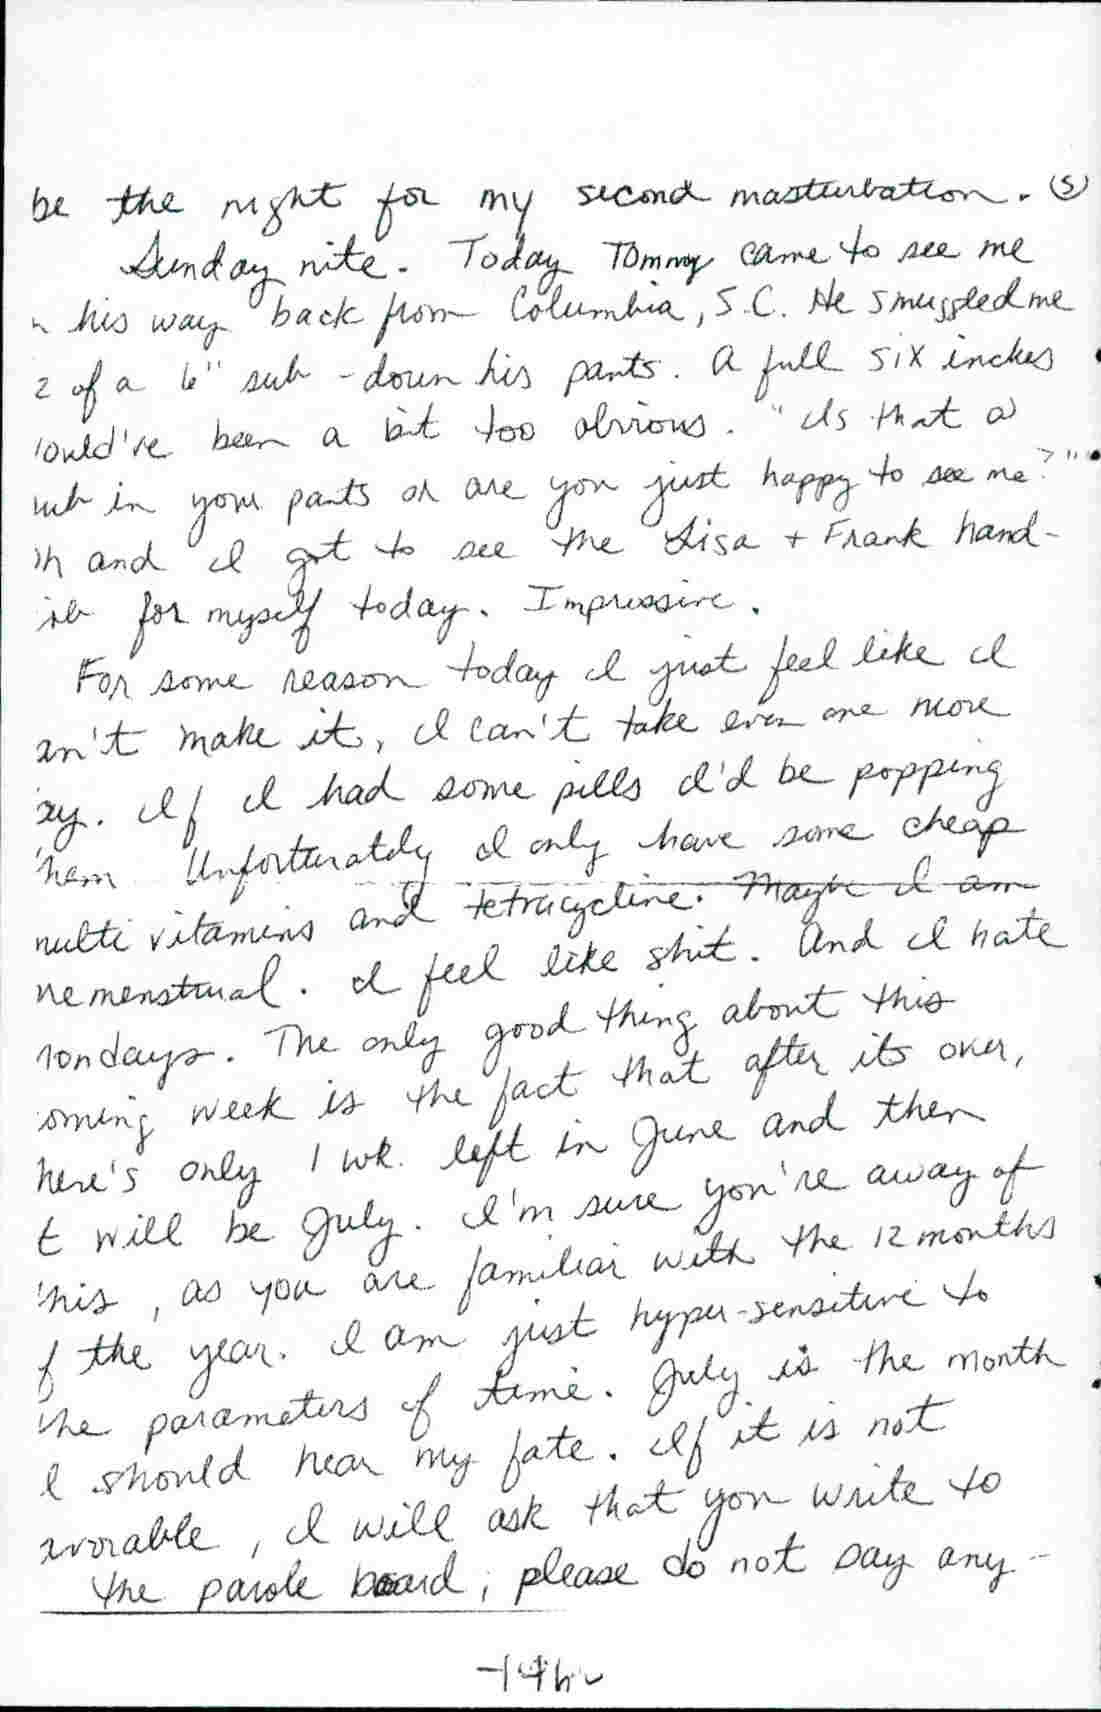 be the night for my second masturbation. (5)
Sunday nite. Today Tommy came to see me
n his way back from Columbia, S.C. He smuggled me
2 of a 6" sub - down his pants. A full six inches
ould've been a bit too obvious. "Is that a
ub in your pants or are you just happy to see me?"
m and I got to see the Lisa + Frank hand-
ob for myself today. Impressive.
For some reason today I just feel like I
an't make it, I can't take even one more
ay. If I had some pills I'd be popping
hem Unfortunately I only have some cheap
multi vitamins and tetracycline. Maybe I am
remenstrual. I feel like shit. And I hate
mondays. The only good thing about this
oming week is the fact that after its over,
here's only 1 wk. left in June and then
t will be July. I'm sure you're away of
his, as you are familiar with the 12 months
f the year. I am just hyper-sensitive to
the parameters of time. July is the month
I should hear my fate. If it is not
avorable, I will ask that you write to
the parole board; please do not say any-